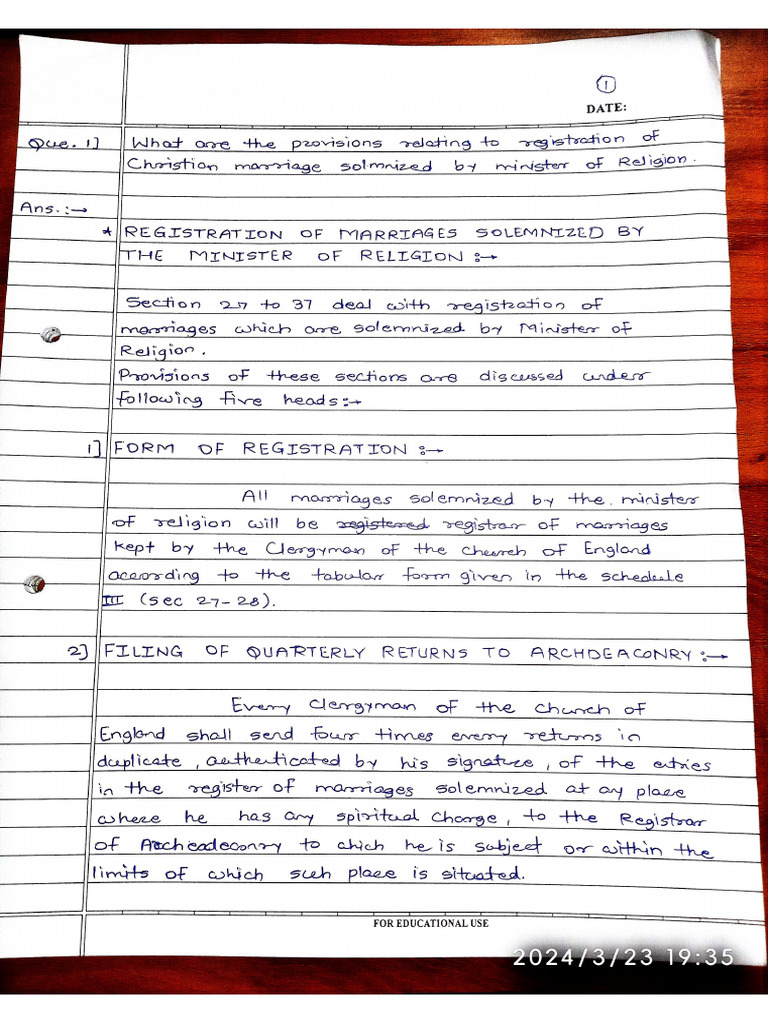 1
DATE:
Que. 1] What are the provisions relating to registration of
Christian marriage solmnized by minister of Religion.
Ans.:→
* REGISTRATION OF MARRIAGES SOLEMNIZED BY
THE MINISTER OF RELIGION :→
Section 27 to 37 deal with registration of
marriages which are solemnized by Minister of
Religion.
Provisions of these sections are discussed under
following five heads:→
1] FORM OF REGISTRATION :→
All marriages solemnized by the minister
of religion will be registered registrar of marriages
kept by the Clergyman of the church of England
according to the tabular form given in the schedule
III (sec 27-28).
2] FILING OF QUARTERLY RETURNS TO ARCHDEACONRY :→
Every Clergyman of the church of
England shall send four times every returns in
duplicate, authenticated by his signature, of the entries
in the register of marriages solemnized at ay place
where he has any spiritual Charge, to the Registrar
of Archeadeconry to chich he is subject or within the
limits of which such place is situated.
FOR EDUCATIONAL USE
2024/3/23 19:35